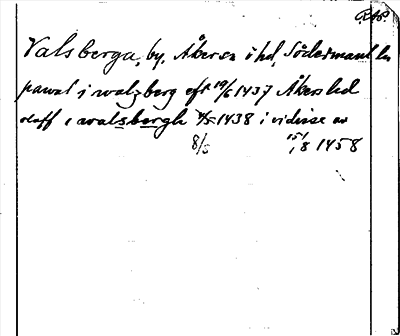 Valsberga, by, Åkers sn o hd, Södermanl län
pawal j walzberg efr 19/6 1437 Åkers hd
oloff i walsbergh 4/5 1438 i vidisse av
8/5 15/1 8 1458